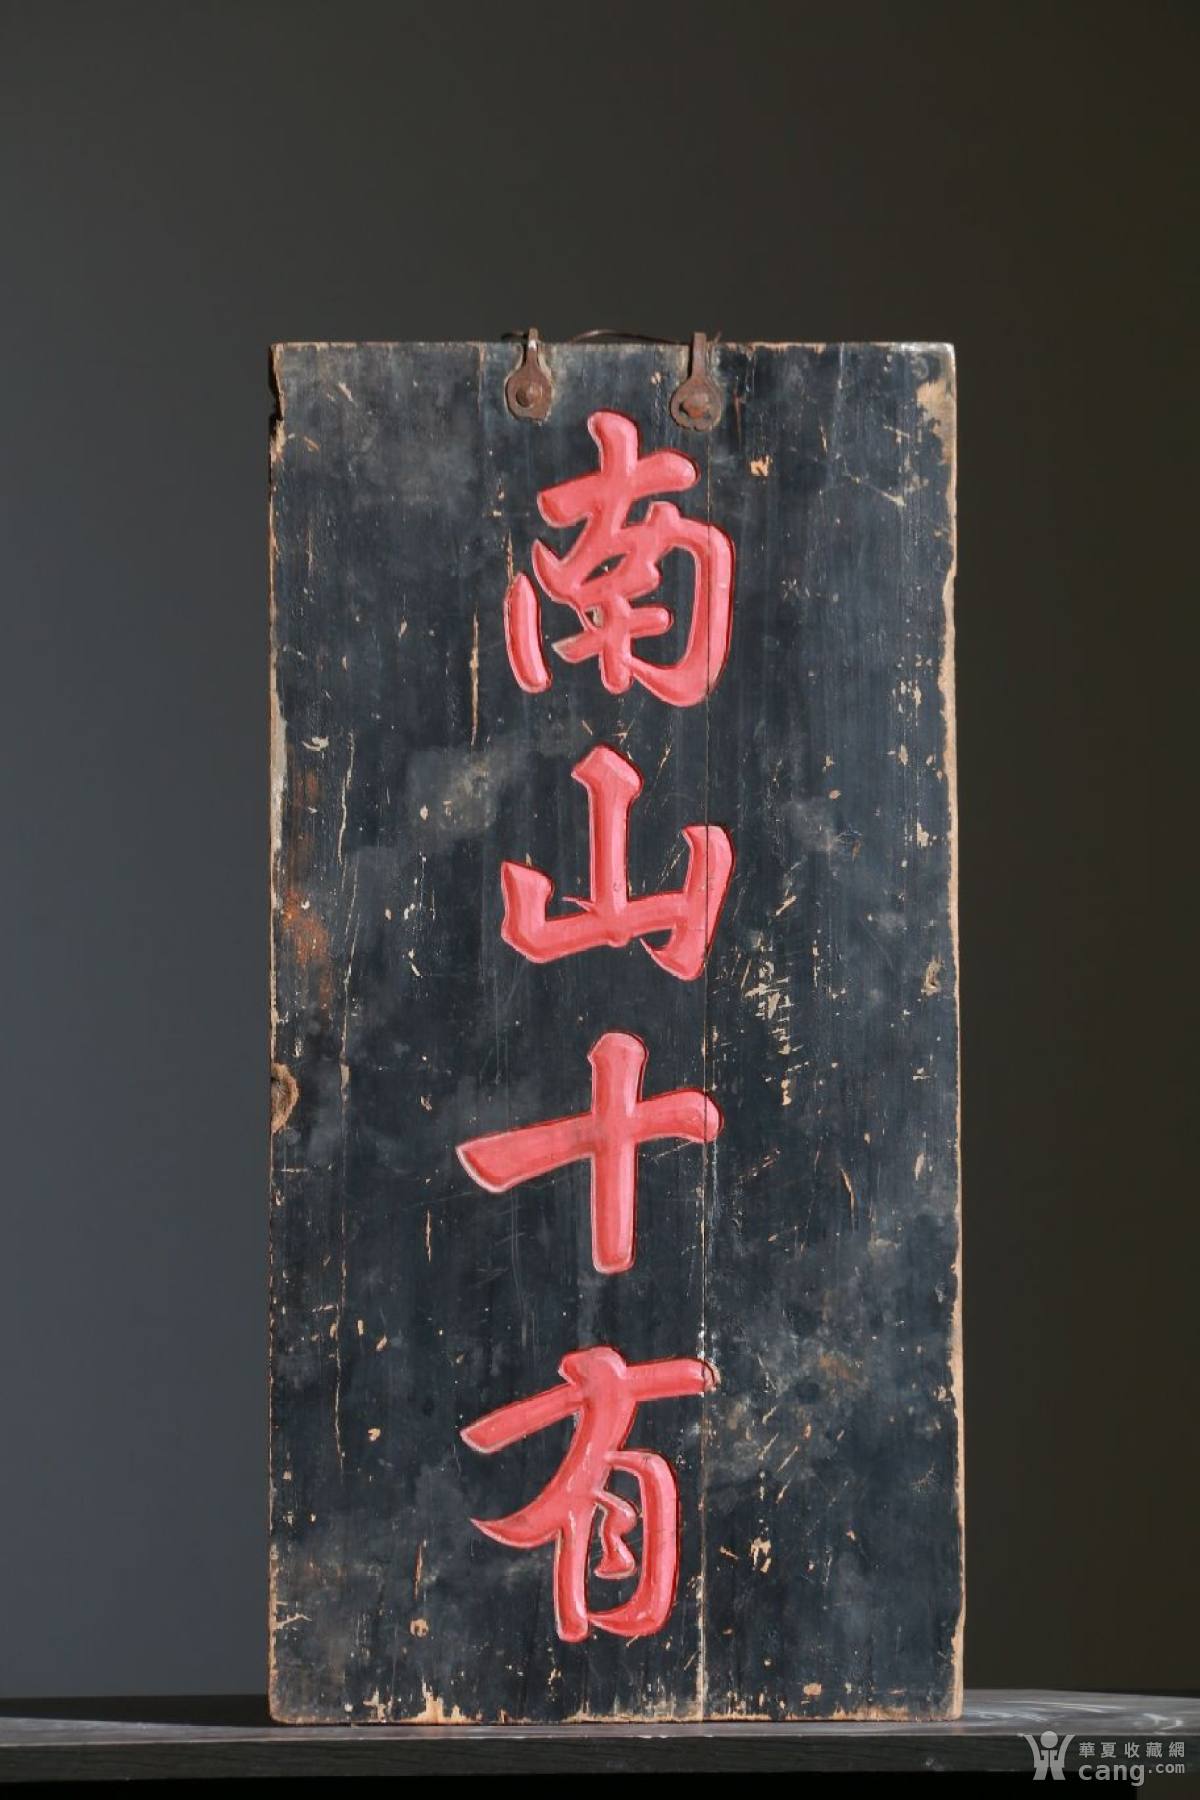 南山十有
華夏收藏網
cang.com